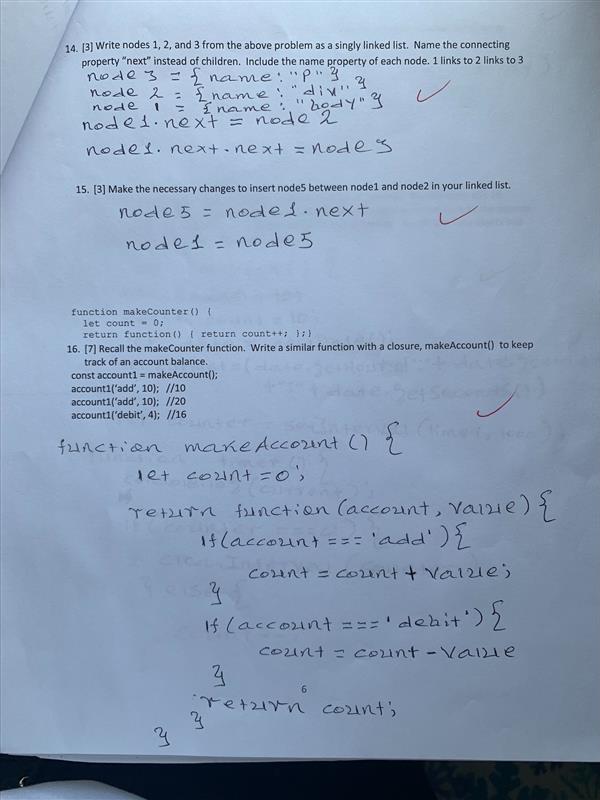 14. [3] Write nodes 1, 2, and 3 from the above problem as a singly linked list. Name the connecting
property "next" instead of children. Include the name property of each node. 1 links to 2 links to 3
node 3 = { name: "P" }
node 2 = { name: "div" }
node 1 = { name: "body" }
node1.next = node 2
node1.next.next = node3
15. [3] Make the necessary changes to insert node5 between node1 and node2 in your linked list.
node5 = node1.next
node1 = node5
function makeCounter() {
let count = 0;
return function() { return count++; };}
16. [7] Recall the makeCounter function. Write a similar function with a closure, makeAccount() to keep
track of an account balance.
const account1 = makeAccount();
account1('add', 10); //10
account1('add', 10); //20
account1('debit', 4); //16
function makeAccount() {
let count = 0;
return function (account, value) {
If(account === 'add') {
count = count + value;
}
If(account === 'debit') {
count = count - value
}
6
return count;
}
}